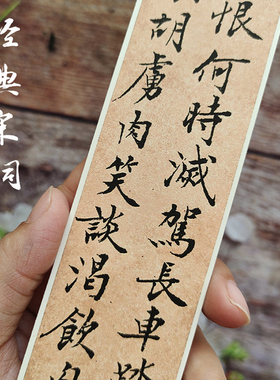 恨何時滅駕長車踏
胡虜肉笑談渴飲
经典宋词